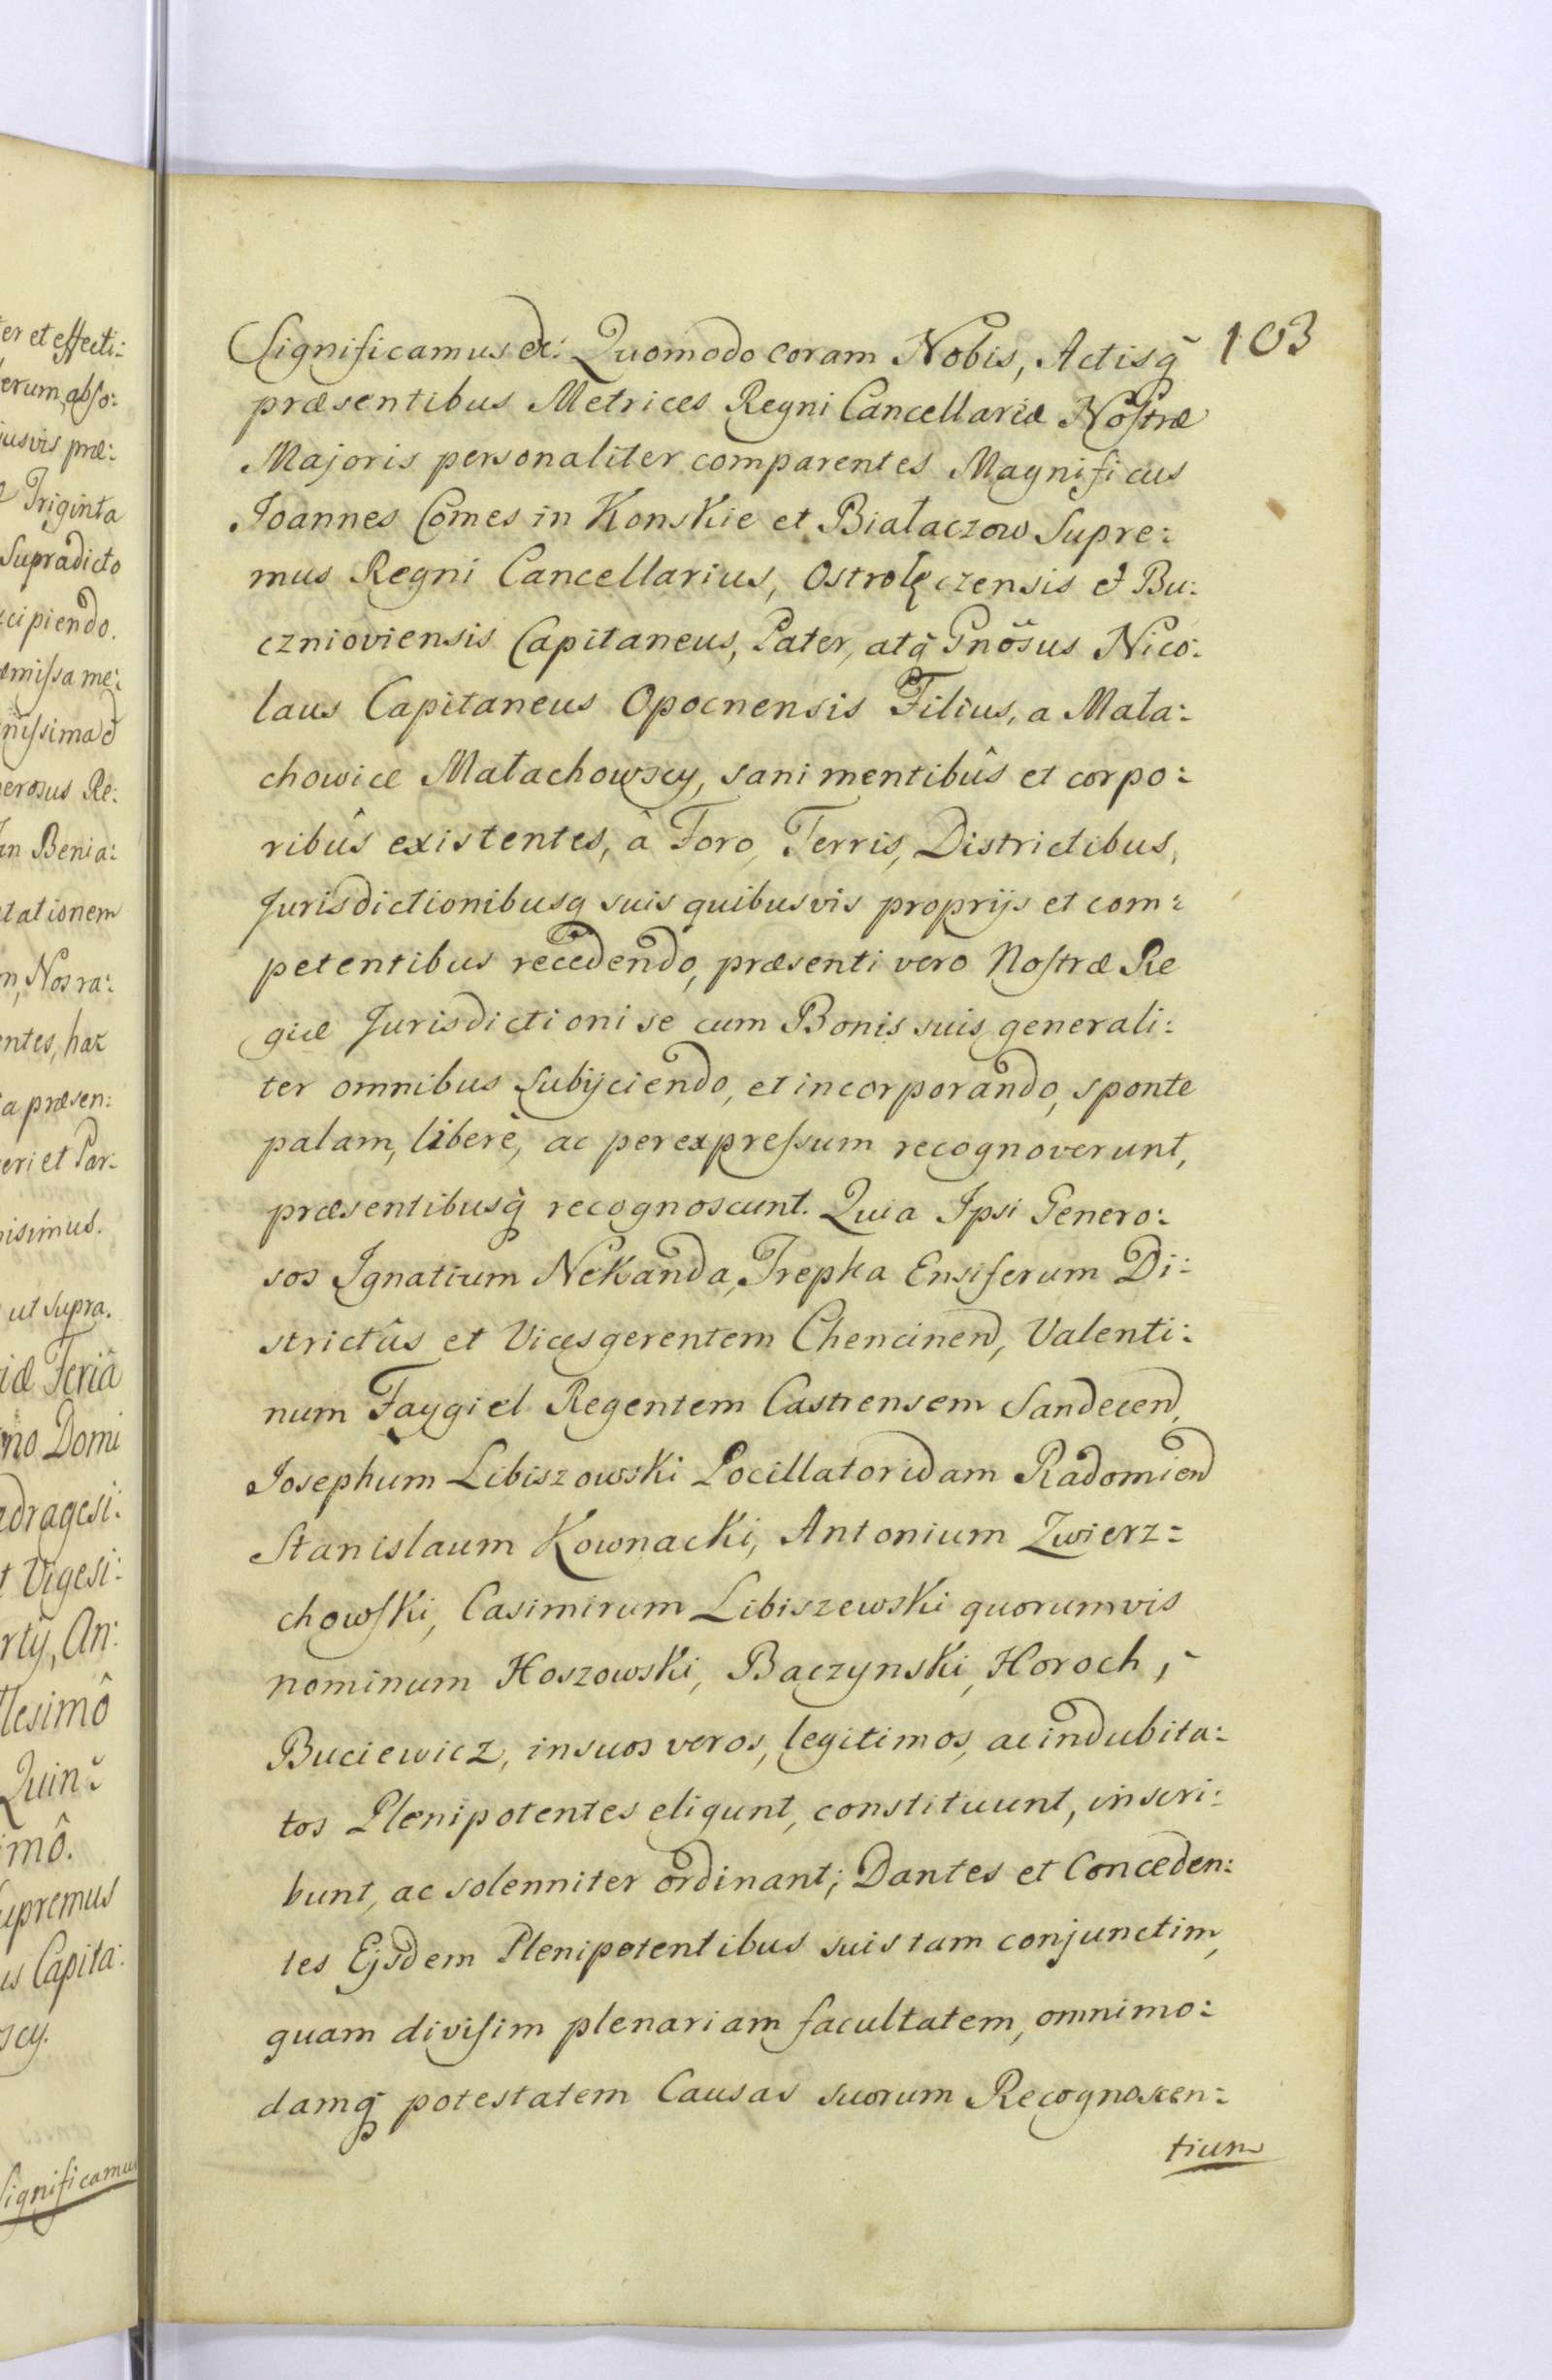 er et effecti:
erum, abso:
jusvis præ:
Triginta
Supradicto
cipiendo.
emissa me:
nissima d
erosus Re:
an Benia:
tationem
m, Nos ra:
entes, hac
a præsen:
eri et Par:
nisimus.
ut supra.
iæ Feriâ
no Domi
adragesi:
t Vigesi:
rty, An:
llesimô
Quin:
imô.
upremus
us Capita:
scy.
Significamus
103
Significamus etc: Quomodo coram Nobis, Actisq̃
præsentibus Metrices Regni Cancellariæ Nostræ
Majoris personaliter comparentes Magnificus
Joannes Comes in Konskie et Białaczow Supre:
mus Regni Cancellarius, Ostrołęczensis et Bu:
cznioviensis Capitaneus, Pater, atq̃ Gnõsus Nico:
laus Capitaneus Opocnensis Filius, a Mała:
chowice Małachowscy, sani mentibûs et corpo:
ribûs existentes, â Foro, Terris, Districtibus,
Jurisdictionibusq suis quibusvis proprijs et com:
petentibus recedendo, præsenti vero Nostræ Re
giæ Jurisdictioni se cum Bonis suis generali:
ter omnibus subijciendo, et incorporando, sponte
palam, liberè, ac per expressum recognoverunt,
præsentibusq̃ recognoscunt. Quia Ipsi Genero:
sos Ignatium Nekanda, Trepka Ensiferum Di:
strictûs et Vicesgerentem Chencinen, Valenti:
num Faygiel Regentem Castrensem Sandecen,
Josephum Libiszowski Pocillatoridam Radomien
Stanislaum Kownacki, Antonium Zwierz:
chowski, Casimirum Libiszewski quorumvis
nominum Hoszowski, Baczynski, Horoch,
Buciewicz, in suos veros, legitimos, ac indubita:
tos Plenipotentes eligunt, constituunt, inscri:
bunt, ac solenniter ordinant; Dantes et Conceden:
tes Ejsdem Plenipotentibus suis tam conjunctim,
quam divisim plenariam facultatem, omnimo:
damq̃ potestatem Causas suorum Recognoscen:
tium